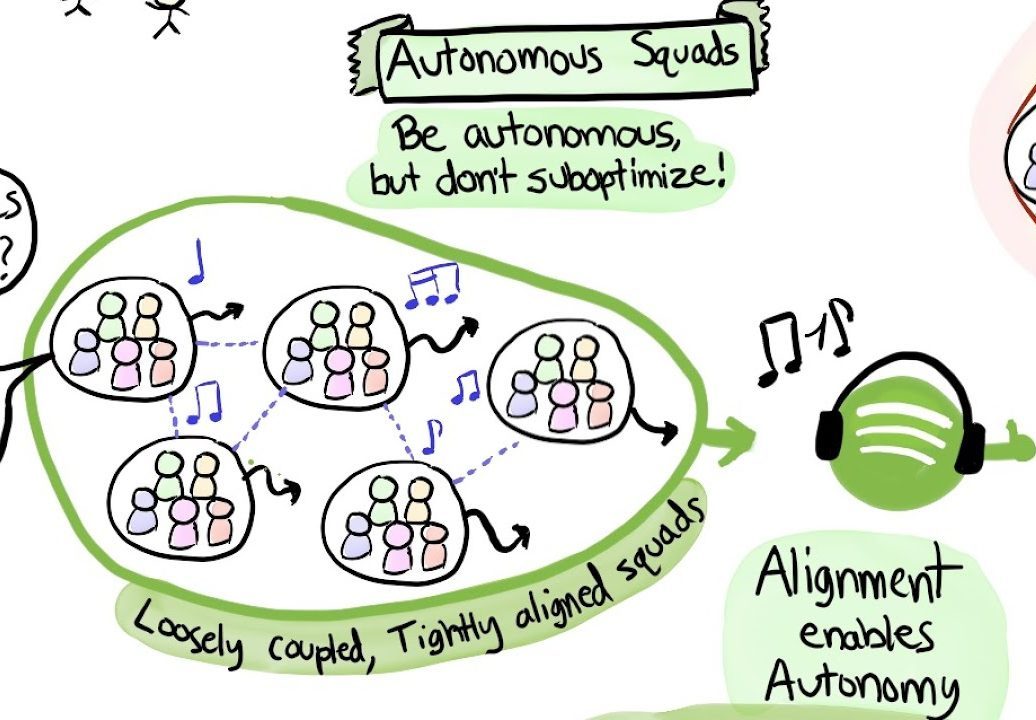 Autonomous Squads
Be autonomous,
but don't suboptimize!
S
?
Loosely coupled, Tightly aligned squads
Alignment
enables
Autonomy